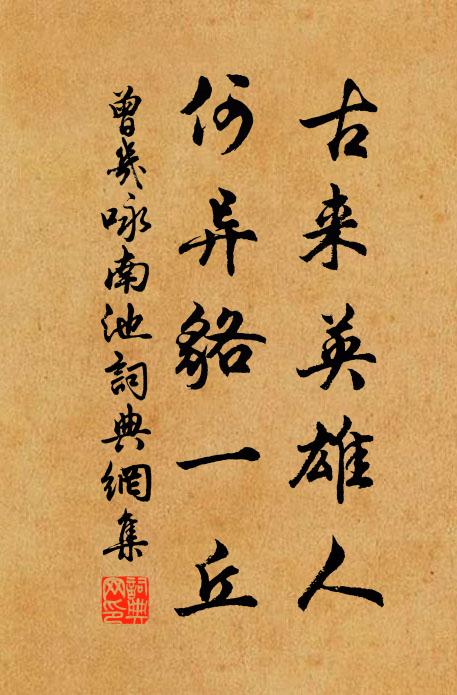 古来英雄人
何异貉一丘
曾几咏南池詞典網集
詞典網印